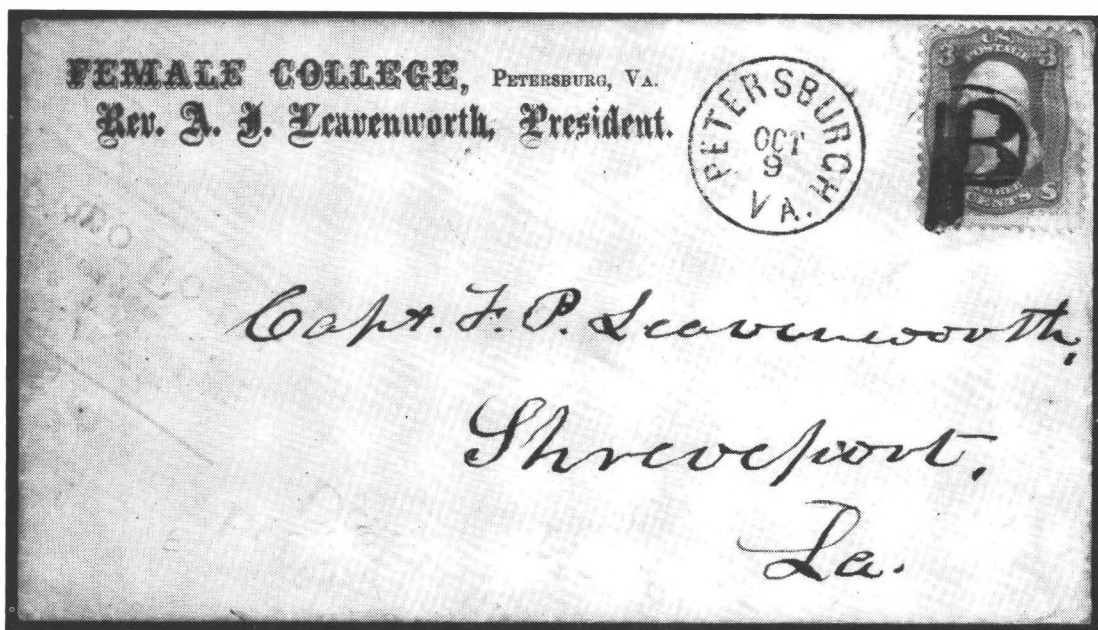 FEMALE COLLEGE, PETERSBURG, VA.
Rev. A. J. Leavenworth, President.
PETERSBURG
OCT
9
VA.
U.S.
POSTAGE
3 3
CENTS
B
Capt. F. P. Leavenworth,
Shreveport,
La.